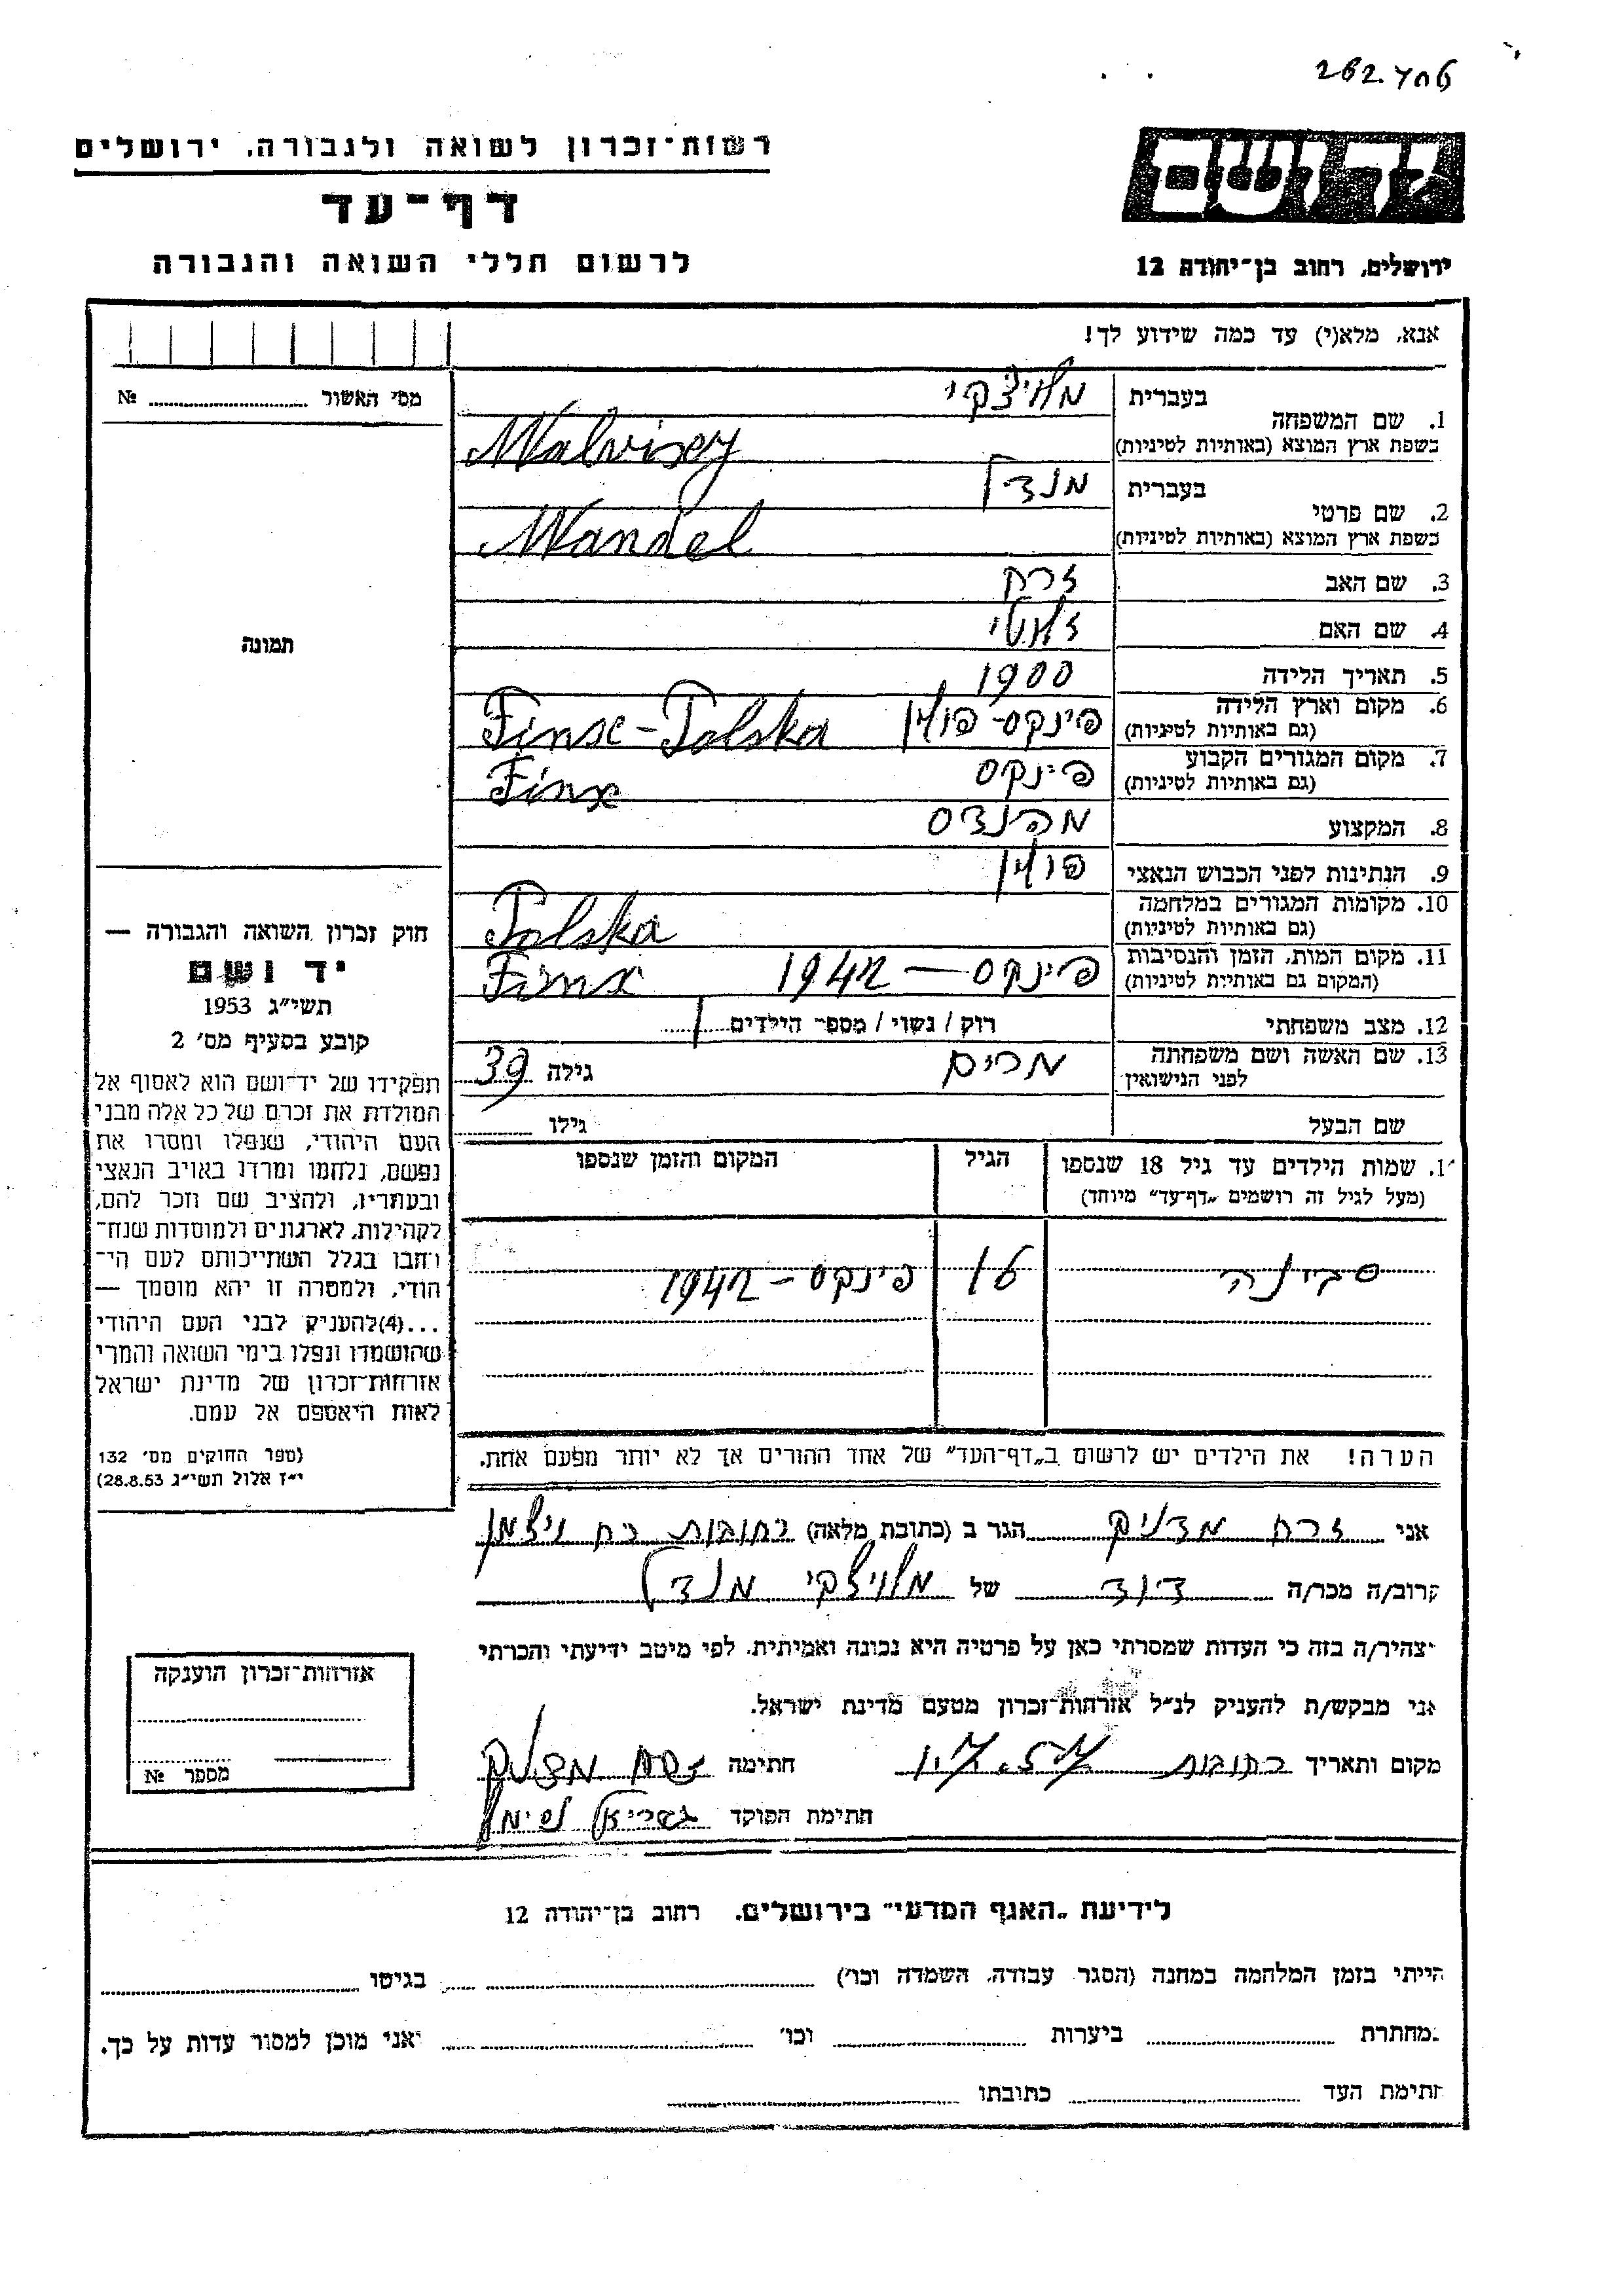 262.706
רשות-זכרון לשואה ולגבורה, ירושלים
דף-עד
לרשום חללי השואה והגבורה
יד ושם
ירושלים, רחוב בן-יהודה 12
אנא, מלא(י) עד כמה שידוע לך!
מס' האשור № ........
1. שם המשפחה
בעברית
מלויצקי
בשפת ארץ המוצא (באותיות לטיניות)
Malvisey
2. שם פרטי
בעברית
מנדל
בשפת ארץ המוצא (באותיות לטיניות)
Mandel
3. שם האב
זרח
4. שם האם
זלאטי
5. תאריך הלידה
1900
6. מקום וארץ הלידה
(גם באותיות לטיניות)
פינקס-פולין Finsc-Polska
7. מקום המגורים הקבוע
(גם באותיות לטיניות)
פינקס Finx
8. המקצוע
מהנדס
9. הנתינות לפני הכבוש הנאצי
פולין
10. מקומות המגורים במלחמה
(גם באותיות לטיניות)
Polska
11. מקום המות, הזמן והנסיבות
(המקום גם באותיות לטיניות)
פינקס — 1942 Finx
12. מצב משפחתי
רוק / נשוי / מספר הילדים 1
13. שם האשה ושם משפחתה
לפני הנישואין
מרים גילה 39
שם הבעל גילו
1. שמות הילדים עד גיל 18 שנספו
(מעל לגיל זה רושמים „דף-עד” מיוחד)
הגיל
המקום והזמן שנספו
סבינה 16 פינקס – 1942
הערה! את הילדים יש לרשום ב„דף-העד” של אחד ההורים אך לא יותר מפעם אחת.
תמונה
חוק זכרון השואה והגבורה —
יד ושם
תשי״ג 1953
קובע בסעיף מס' 2
תפקידו של יד-ושם הוא לאסוף אל
המולדת את זכרם של כל אלה מבני
העם היהודי, שנפלו ומסרו את
נפשם, נלחמו ומרדו באויב הנאצי
ובעוזריו, ולהציב שם וזכר להם,
לקהילות, לארגונים ולמוסדות שנח-
רבו בגלל השתייכותם לעם הי-
הודי, ולמטרה זו יהא מוסמך —
...(4)להעניק לבני העם היהודי
שהושמדו ונפלו בימי השואה והמרי
אזרחות-זכרון של מדינת ישראל
לאות היאספם אל עמם.
(ספר החוקים מס' 132
י״ז אלול תשי״ג 28.8.53)
אני זרח הגר ב (כתובת מלאה) רחובות רח ויצמן
קרוב/ה מכר/ה דוד של מלויצקי מנדל
יצהיר/ה בזה כי העדות שמסרתי כאן על פרטיה היא נכונה ואמיתית, לפי מיטב ידיעתי והכרתי
אני מבקש/ת להעניק לנ״ל אזרחות-זכרון מטעם מדינת ישראל.
מקום ותאריך רחובות חתימה זרח
חתימת הפוקד גבריאל
אזרחות-זכרון הוענקה
מספר №
לידיעת „האגף המדעי” בירושלים, רחוב בן-יהודה 12
הייתי בזמן המלחמה במחנה (הסגר עבודה, השמדה וכו') בגיטו
במחתרת ביערות וכו' ואני מוכן למסור עדות על כך.
חתימת העד כתובתו